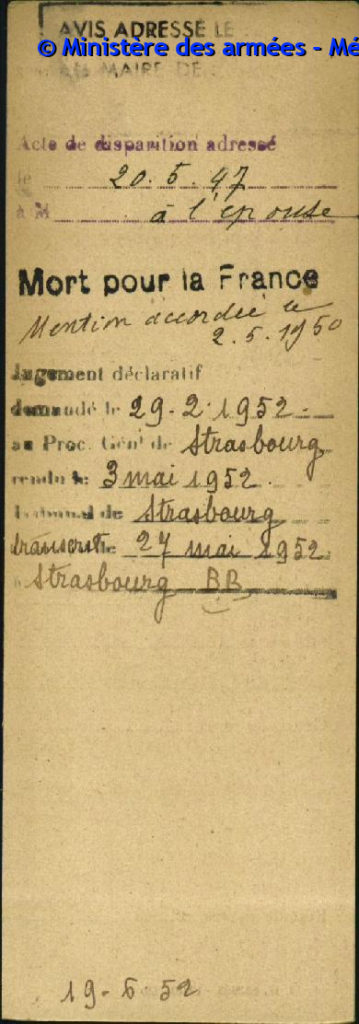 AVIS ADRESSÉ LE
© Ministère des armées - Mé
MAIRE DE
Acte de disparition adressé
le 20.5.47
à M à l'épouse
Mort pour la France
Mention accordée le
2.5.1950
Jugement déclaratif
demandé le 29-2-1952-
au Proc. Génl de Strasbourg
rendu le 3 mai 1952.
Tribunal de Strasbourg
transcrit le 27 mai 1952
à Strasbourg BB
19-6-52